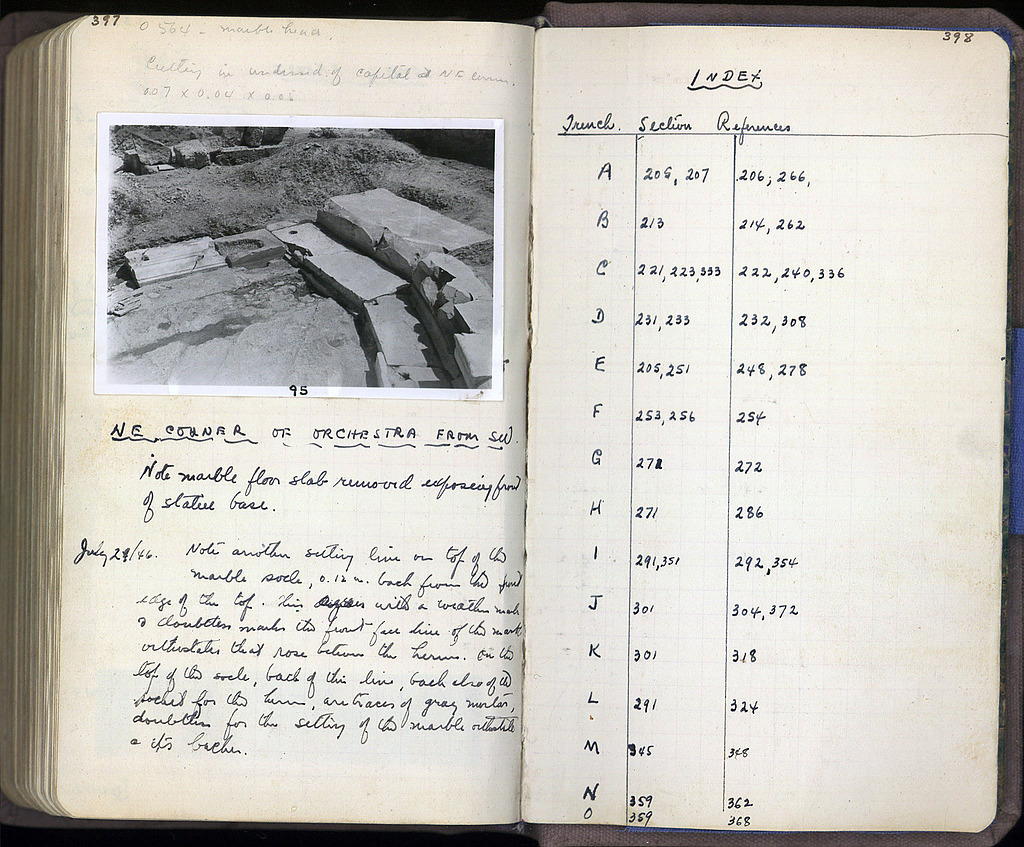 397
O 564 - marble head.
Cutting in underside of capital at NE corner.
0.07 x 0.04 x 0.05
95
NE CORNER OF ORCHESTRA FROM SW.
Note marble floor slab removed exposing front
of statue base.
July 29/46. Note another setting line on top of the
marble socle, 0.12 m. back from the front
edge of the top. This with a weather mark
& doubtless marks the front face line of the marble
orthostates that rose between the herms. On the
top of the socle, back of this line, back also of the
socket for the herms, are traces of gray mortar,
doubtless for the setting of the marble orthostate
& its backer.
398
INDEX
Trench. Section References
A 205, 207 206, 266,
B 213 214, 262
C 221, 223, 333 222, 240, 336
D 231, 233 232, 308
E 205, 251 248, 278
F 253, 256 254
G 271 272
H 271 286
I 291, 351 292, 354
J 301 304, 372
K 301 318
L 291 324
M 345 348
N 359 362
O 359 368